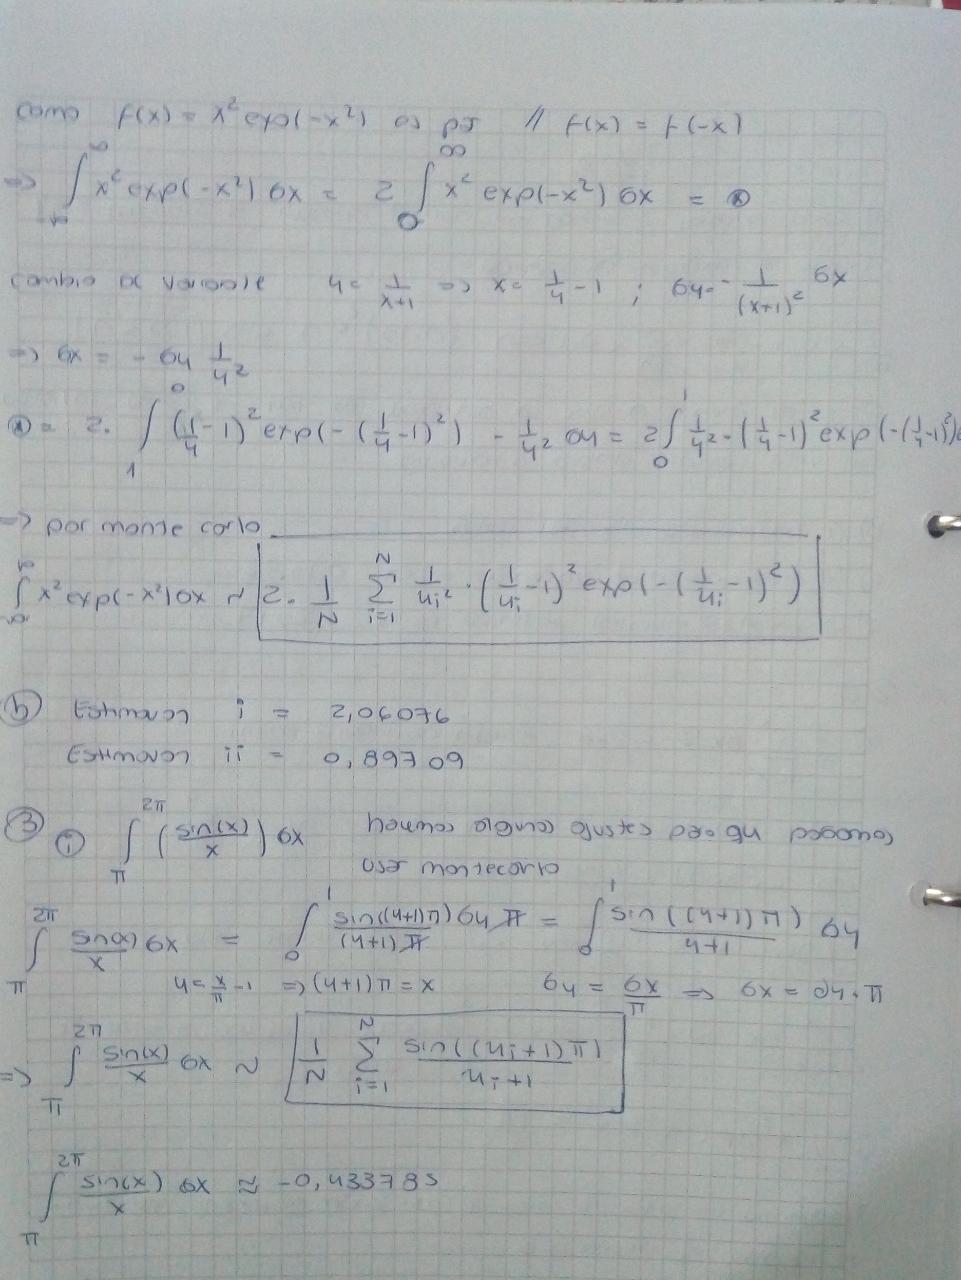 como f(x) = x² exp(-x²) es par // f(x) = f(-x)
=> ∫_{-∞}^{∞} x² exp(-x²) dx = 2 ∫_0^∞ x² exp(-x²) dx = ⊛
Cambio de variable u = 1/(x+1) => x = 1/u - 1 ; du = - 1/(x+1)² dx
=> dx = - du 1/u²
⊛ = 2. ∫_1^0 (1/u - 1)² exp(-(1/u - 1)²) - 1/u² du = 2∫_0^1 1/u² · (1/u - 1)² exp(-(1/u - 1)²)
=> por monte carlo
∫_{-∞}^{∞} x² exp(-x²) dx ~ 2. 1/N ∑_{i=1}^N 1/u_i² · (1/u_i - 1)² exp(-(1/u_i - 1)²)
Estimación i = 2,06076
Estimación ii = 0,89709
③ ⓘ ∫_π^{2π} (sin(x)/x) dx
usar montecarlo
∫_π^{2π} sin(x)/x dx = ∫_0^1 sin((u+1)π)/((u+1)π) du π = ∫_0^1 sin((u+1)π)/(u+1) du
u = x/π - 1 => (u+1)π = x du = dx/π => dx = du·π
=> ∫_π^{2π} sin(x)/x dx ~ 1/N ∑_{i=1}^N sin((u_i+1)π)/(u_i+1)
∫_π^{2π} sin(x)/x dx ≈ -0,433785